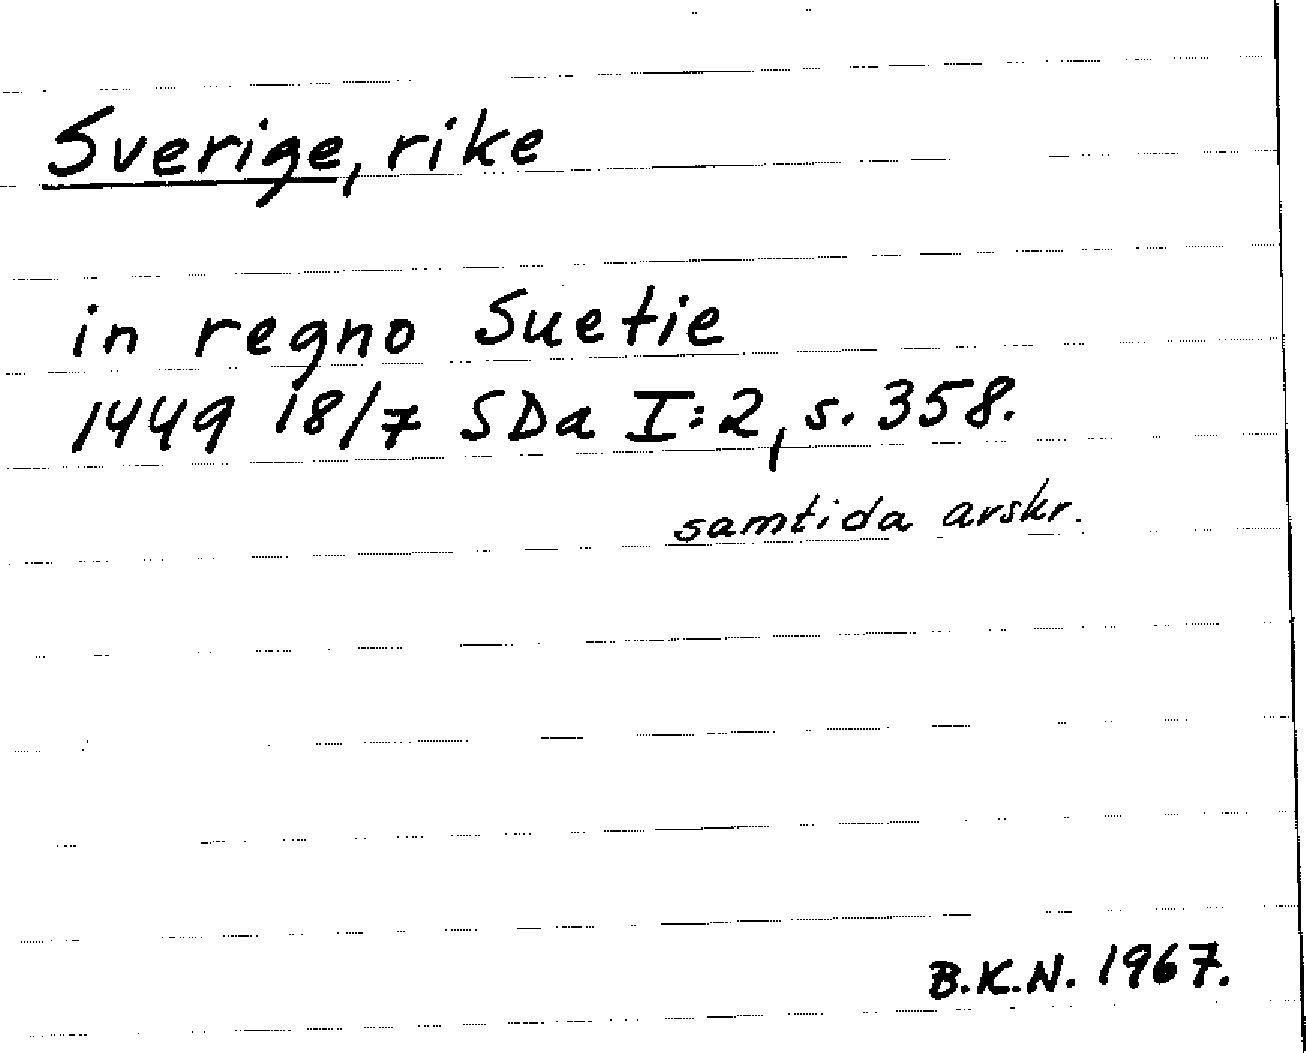 Sverige, rike
in regno Suetie
1449 18/7 SDa I:2, s. 358.
samtida avskr.
B.K.N. 1967.